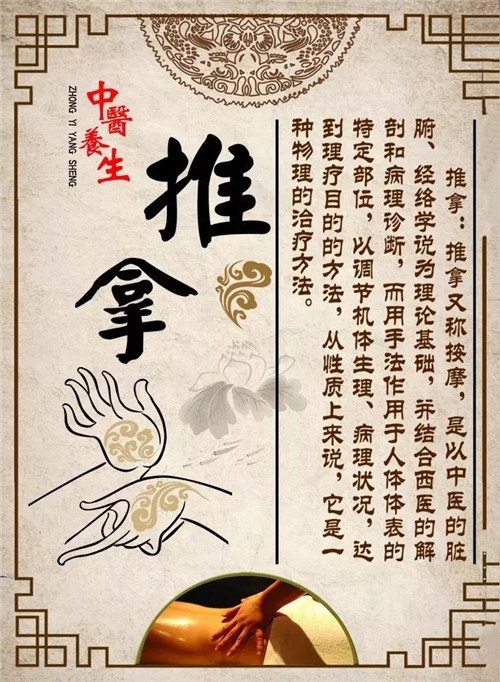 中醫養生
ZHONG YI YANG SHENG
推拿
推拿：推拿又称按摩，是以中医的脏
腑、经络学说为理论基础，并结合西医的解
剖和病理诊断，而用手法作用于人体体表的
特定部位，以调节机体生理、病理状况，达
到理疗目的的方法，从性质上来说，它是一
种物理的治疗方法。